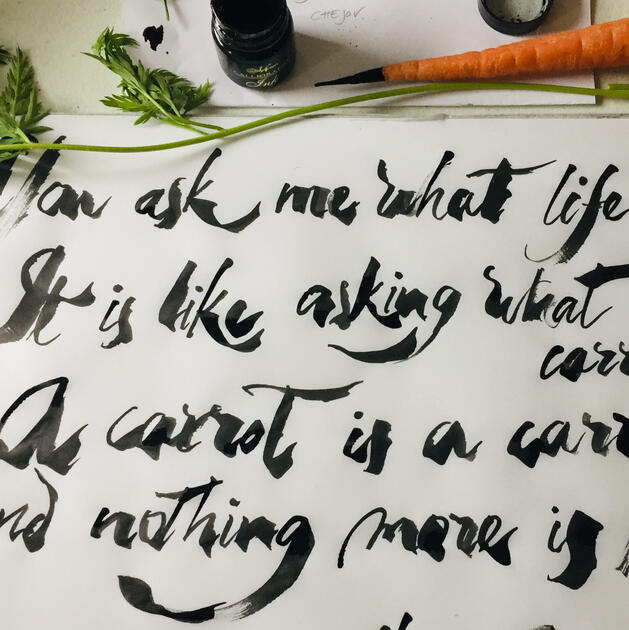 CHEJOV
Ink
You ask me what life
It is like asking what
carr
A carrot is a carr
nd nothing more is